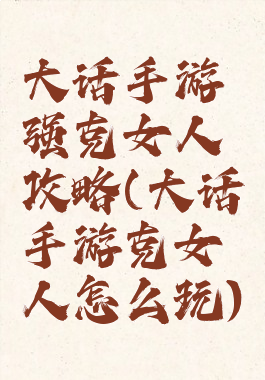 大话手游
强克女人
攻略(大话
手游克女
人怎么玩)